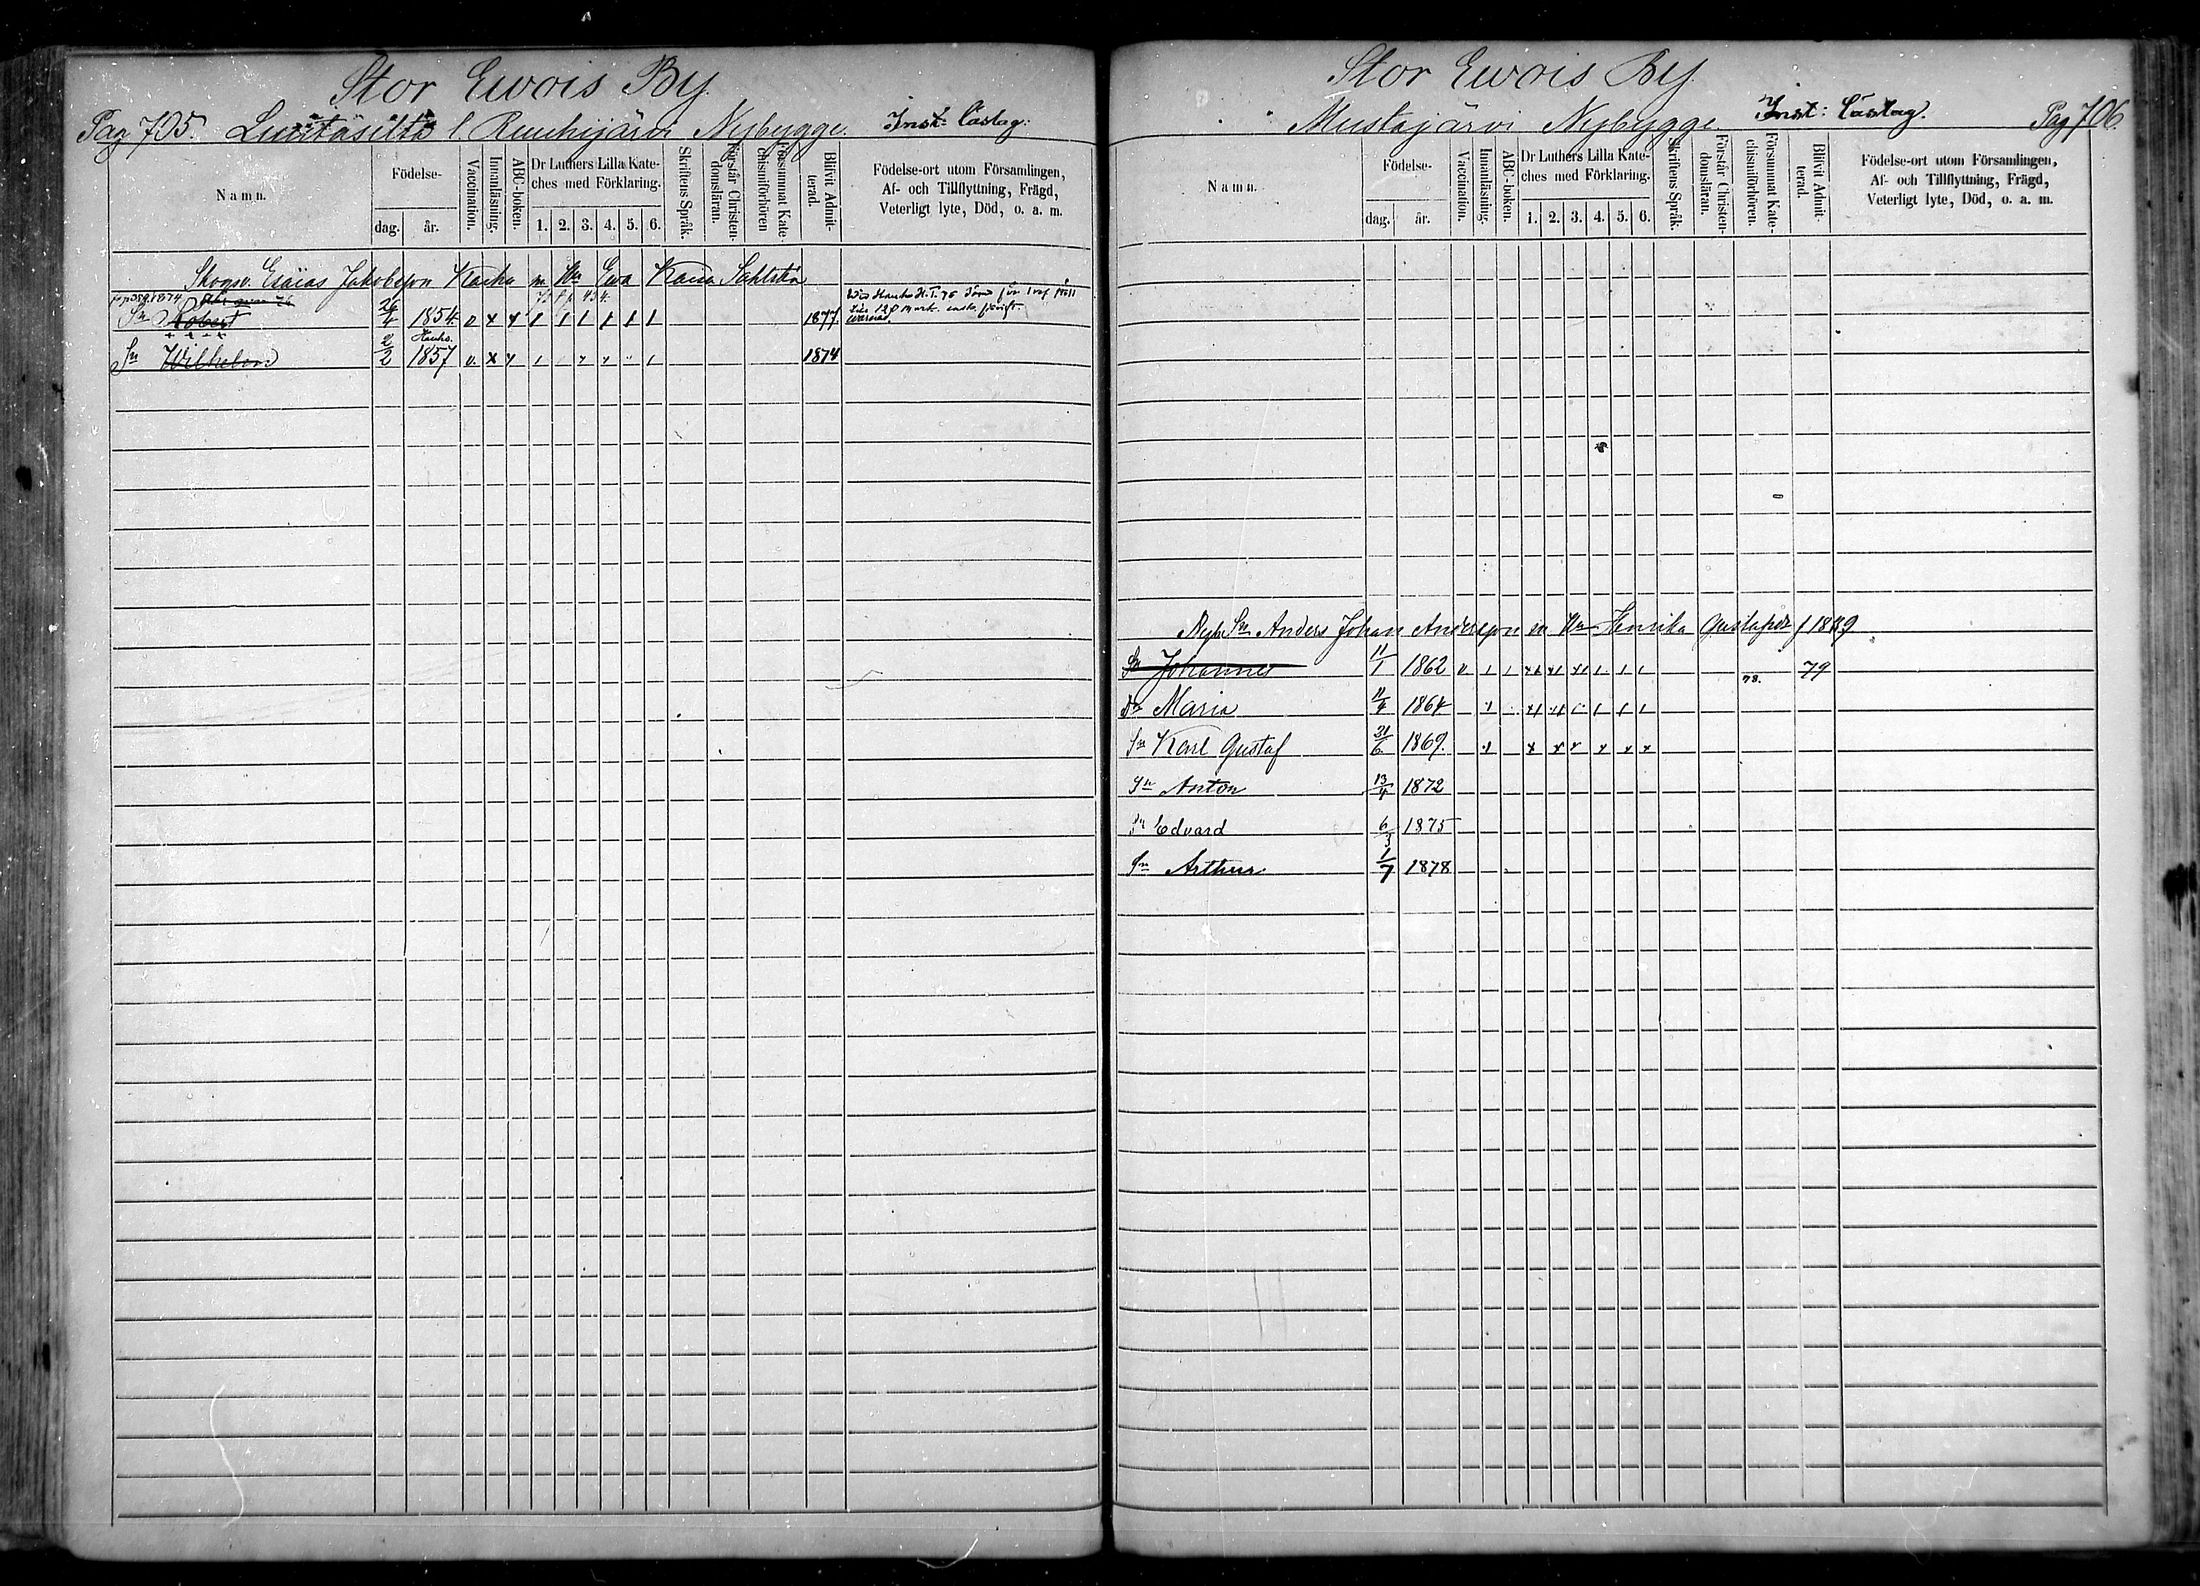 Stor Ewois By
Pag 705. l. Ruuhijärvi Nybygge. Inst: Låstag:
Namn.
Födelse-
dag.
år.
Vaccination.
Innanläsning.
ABC-boken.
Dr Luthers Lilla Kate-
ches med Förklaring.
1. 2. 3. 4. 5. 6.
Skriftens Språk.
Förstår Christen-
domsläran.
Försummat Kate-
chismiförhören
Blifvit Admit-
terad
Födelse-ort utom Församlingen,
Af- och Tillflyttning, Frägd,
Veterligt lyte, Död, o. a. m.
Skogsv. Esaias Jakobsson m Hu Ewa Kaisa
Sn Robert 26/4 1854. v x x 1 1 1 1 1 1 1877.
Hauho.
Sn Wilhelm 2/2 1857 v. x x 1874
Stor Ewois By.
Mustajärvi Nybygge. Inst: Låstag. Pag 706.
Namn.
Födelse-
dag.
år.
Vaccination.
Innanläsning.
ABC-boken.
Dr Luthers Lilla Kate-
ches med Förklaring.
1. 2. 3. 4. 5. 6.
Skriftens Språk.
Förstår Christen-
domsläran.
Försummat Kate-
chismiförhören.
Blifvit Admit-
terad.
Födelse-ort utom Församlingen,
Af- och Tillflyttning, Frägd,
Veterligt lyte, Död, o. a. m.
Sn Anders Johan Andersson m Hu Henrika
Sn Johannes 11/1 1862 78. 79
Dr Maria 11/4 1864
Sn Karl Gustaf 21/6 1869.
Sn Anton 13/4 1872
Sn Edvard 6/3 1875
Sn Arthur 1/7 1878